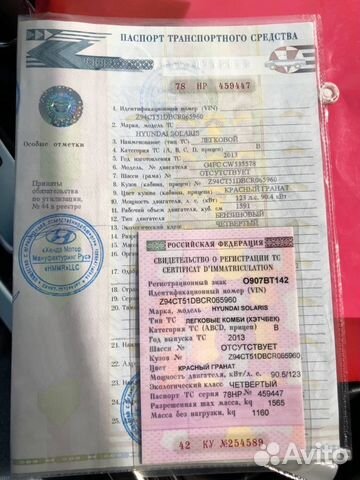 ПАСПОРТ ТРАНСПОРТНОГО СРЕДСТВА
78 НР 459447
1. Идентификационный номер (VIN)
Z94CT51DBCR065960
2. Марка, модель ТС
HYUNDAI SOLARIS
3. Наименование (тип ТС) ЛЕГКОВОЙ
4. Категория ТС (А, В, С, D, прицеп) В
5. Год изготовления ТС 2013
6. Модель, № двигателя G4FC CW535578
7. Шасси (рама) № ОТСУТСТВУЕТ
8. Кузов (кабина, прицеп) № Z94CT51DBCR065960
9. Цвет кузова (кабины, прицепа) КРАСНЫЙ ГРАНАТ
10. Мощность двигателя, л. с. (кВт) 123 л.с. 90.4 кВт
11. Рабочий объем двигателя, куб. см 1591
12. Тип двигателя БЕНЗИНОВЫЙ
13. Экологический класс ЧЕТВЕРТЫЙ
14.
15.
16.
17.
18.
21.
22.
23.
24.
25.
Особые отметки
Приняты
обязательства по
утилизации,
№ 44 в реестре
«Хендэ Мотор
Мануфактуринг Рус»
«HMMR»LLC
РОССИЙСКАЯ ФЕДЕРАЦИЯ
СВИДЕТЕЛЬСТВО О РЕГИСТРАЦИИ ТС
CERTIFICAT D'IMMATRICULATION
Регистрационный знак О907ВТ142
Идентификационный номер (VIN)
Z94CT51DBCR065960
Марка, модель HYUNDAI SOLARIS
Тип ТС ЛЕГКОВЫЕ КОМБИ (ХЭТЧБЕК)
Категория ТС (ABCD, прицеп) В
Год выпуска ТС 2013
Шасси № ОТСУТСТВУЕТ
Кузов № Z94CT51DBCR065960
Цвет КРАСНЫЙ ГРАНАТ
Мощность двигателя, кВт/л. с. 90.5/123
Экологический класс ЧЕТВЕРТЫЙ
Паспорт ТС серия 78НР № 459447
Разрешенная max масса, kg 1565
Масса без нагрузки, kg 1160
42 КУ №254589
Avito